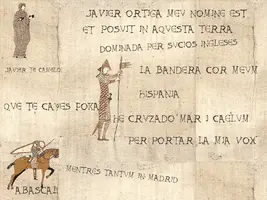 JAVIER ORTIGA MEV NOMINE EST
ET POSVIT IN AQVESTA TERRA
DOMINADA PER SVCIOS INGLESES
JAVIER TE CAMELO
LA BANDERA COR MEVM
HISPANIA
QVE TE CAYES FOXA
HE CRVZADO MAR I CAELVM
PER PORTAR LA MIA VOX
MENTRES TANTVM IN MADRID
ABASCAL